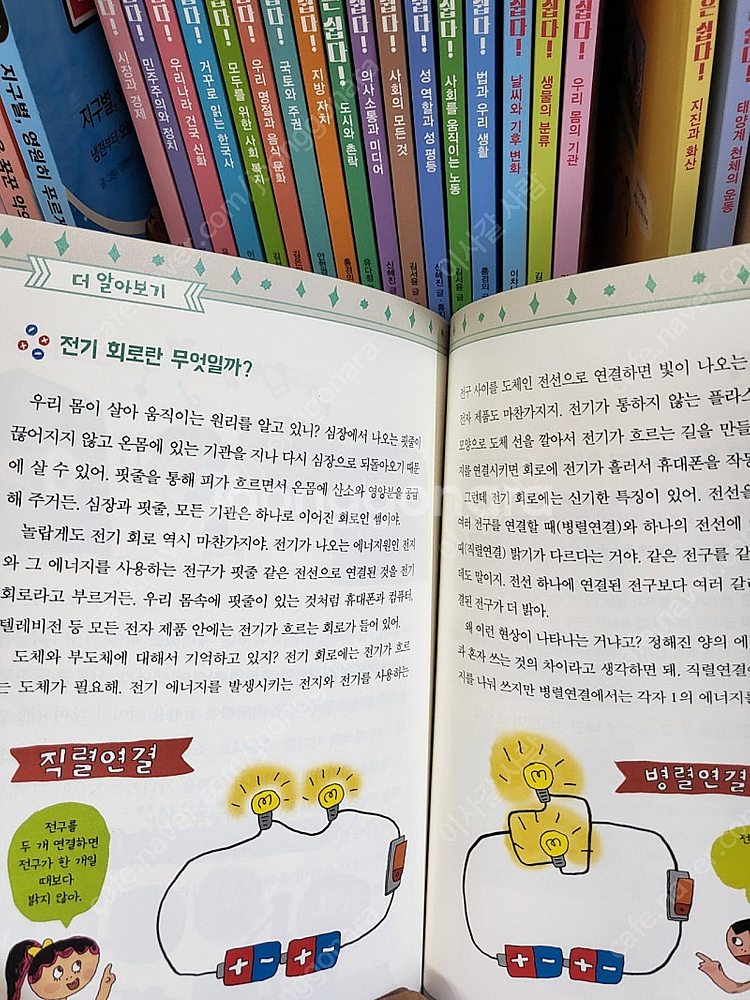 쉽다!
시장과 경제
민주주의와 정치
우리나라 건국 신화
거꾸로 읽는 한국사
모두를 위한 사회 복지
우리 명절과 음식 문화
국토와 주권
지방 자치
도시와 촌락
의사소통과 미디어
사회의 모든 것
성 역할과 성 평등
사회를 움직이는 노동
법과 우리 생활
날씨와 기후 변화
생물의 분류
우리 몸의 기관
은 쉽다!
지진과 화산
태양계 천체의 운동
지구별, 영원히 푸르
지구별,
더 알아보기
전기 회로란 무엇일까?
우리 몸이 살아 움직이는 원리를 알고 있니? 심장에서 나오는 핏줄이
끊어지지 않고 온몸에 있는 기관을 지나 다시 심장으로 되돌아오기 때문
에 살 수 있어. 핏줄을 통해 피가 흐르면서 온몸에 산소와 영양분을 공급
해 주거든. 심장과 핏줄, 모든 기관은 하나로 이어진 회로인 셈이야.
놀랍게도 전기 회로 역시 마찬가지야. 전기가 나오는 에너지원인 전지
와 그 에너지를 사용하는 전구가 핏줄 같은 전선으로 연결된 것을 전기
회로라고 부르거든. 우리 몸속에 핏줄이 있는 것처럼 휴대폰과 컴퓨터,
텔레비전 등 모든 전자 제품 안에는 전기가 흐르는 회로가 들어 있어.
도체와 부도체에 대해서 기억하고 있지? 전기 회로에는 전기가 흐르
는 도체가 필요해. 전기 에너지를 발생시키는 전지와 전기를 사용하는
직렬연결
전구를
두 개 연결하면
전구가 한 개일
때보다
밝지 않아.
+ − + −
전구 사이를 도체인 전선으로 연결하면 빛이 나오는
전자 제품도 마찬가지지. 전기가 통하지 않는 플라스
모양으로 도체 선을 깔아서 전기가 흐르는 길을 만들
지를 연결시키면 회로에 전기가 흘러서 휴대폰을 작동
그런데 전기 회로에는 신기한 특징이 있어. 전선을
여러 전구를 연결할 때(병렬연결)와 하나의 전선에
때(직렬연결) 밝기가 다르다는 거야. 같은 전구를 같
데도 말이지. 전선 하나에 연결된 전구보다 여러 갈래
결된 전구가 더 밝아.
왜 이런 현상이 나타나는 거냐고? 정해진 양의 에
과 혼자 쓰는 것의 차이라고 생각하면 돼. 직렬연결에
지를 나눠 쓰지만 병렬연결에서는 각자 1의 에너지를
병렬연결
+ − + −